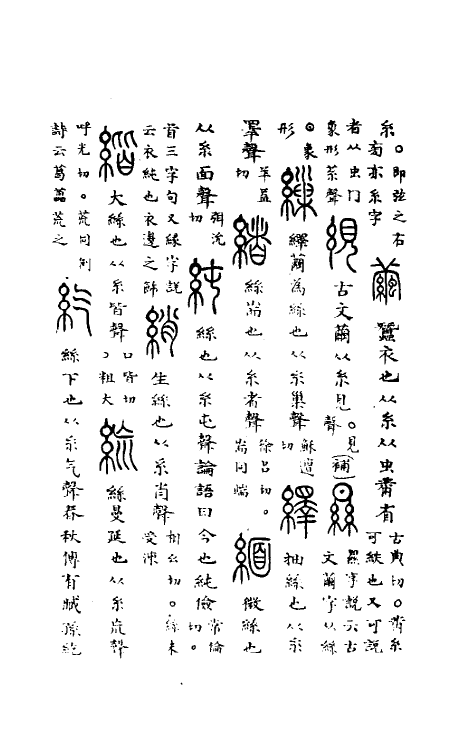 糸。即弦之右亦糸字 繭 蠶衣也从糸从虫黹省 古典切。黹糸可紩也又可説
者从虫冂象形芾聲 絸 古文繭从糸見。見聲(補) 字説云古文繭字从絲
象形 繅 繹繭爲絲也从糸巢聲 穌遭切 繹 抽絲也从糸
睪聲 羊益切 緒 絲耑也从糸者聲 徐呂切。耑同端 緬 微絲也
从糸面聲 弭沇切 純 絲也从糸屯聲論語曰今也純儉 常倫切。
昔三字句又緣字説云衣純也衣邊之飾 綃 生絲也从糸肖聲 相幺切。絲未受湅
緒 大絲也从糸皆聲 口皆切粗大 絲曼延也从糸巟聲
呼光切。荒同 詩云葛藟荒之 紇 絲下也从糸气聲春秋傳有臧孫紇